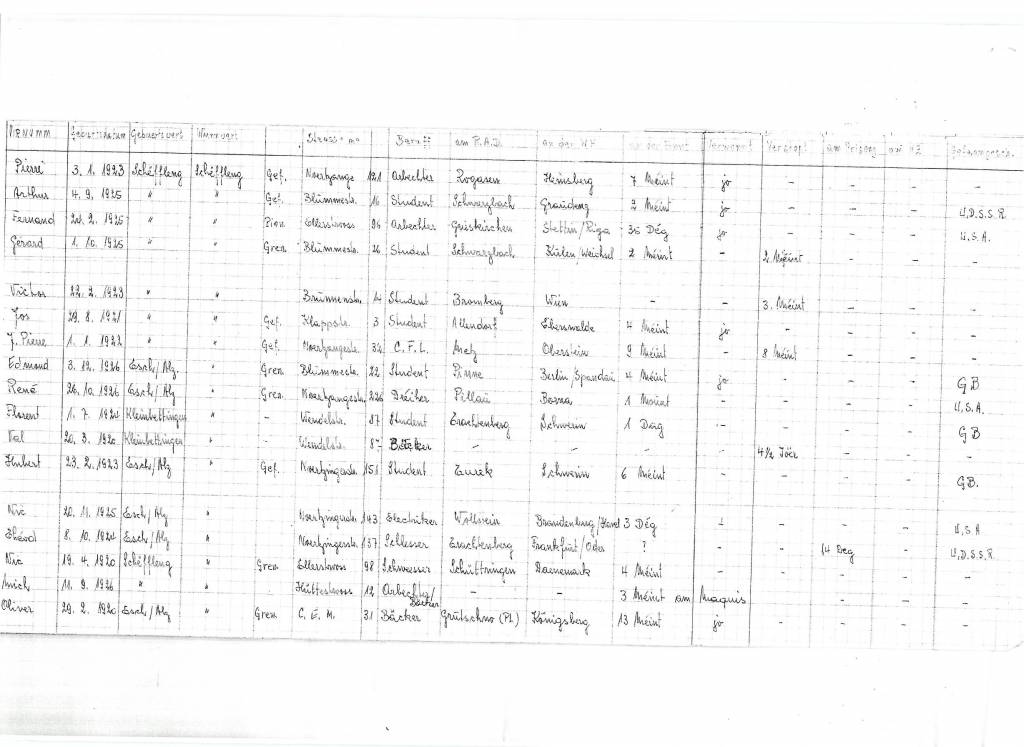 VIRNUMM Geburtsdatum Geburtsuert Wunnuert Strooss + no Beruff am R.A.D. an der WH an der Front Verwonnt Verstopt am Prisong am KZ Gefaangesch.
Pierre 3. 1. 1923 Schëffleng Schëffleng Gef. Noertzange 121 Arbechter Rogasen Heinsberg 7 Méint jo - - - -
Arthur 4. 9. 1925 " " Gef. Blummestr. 16 Student Schwarzbach Graudenz 2 Méint jo - - - U.D.S.S.R.
Fernand 24. 2. 1925 " " Pion. Ellerstrooss 96 Arbechter Grieskirchen Stettin/Riga 35 Deg jo - - - U.S.A.
Gérard 1. 10. 1925 " " Gren. Blummestr. 26 Student Schwarzbach Kulen/Weichsel 2 Méint - 2 Méint - - -
Victor 22. 2. 1923 " " Brunnenstr. 14 Student Bromberg Wien - - 3. Méint - - -
Jos 29. 8. 1921 " " Gef. Klappstr. 3 Student Allendorf Eberswalde 4 Méint jo - - - -
J. Pierre 1. 1. 1922 " Gef. Noertzangestr. 34 C.F.L. Metz Oberstein 9 Méint - 8 Méint - - -
Edmond 3. 12. 1926 Esch/Alz " Gren. Blummestr. 22 Student Pinne Berlin/Spandau 4 Méint jo - - - GB
René 26. 10. 1926 Esch/Alz " Gren. Noertzangestr. 226 Dréiher Pillau Borna 1 Mount - - - - U.S.A.
Florent 1. 7. 1924 Kleinbettingen " - Wendelstr. 87 Student Drachtenberg Schwerin 1 Dag - - - - GB
Val 20. 3. 1920 Kleinbettingen " - Wendelstr. 87 Bäcker - - - - 4½ Joer - - -
Hubert 23. 2. 1923 Esch/Alz " Gef. Noertzingerstr. 151 Student Turek Schwerin 6 Méint - - - - GB.
Nic 20. 11. 1925 Esch/Alz " Noertzingerstr. 143 Electriker Wollstein Brandenburg/Havel 3 Dég - - - - U.S.A
8. 10. 1924 Esch/Alz " Noertzingerstr. 137 Schlesser Drachtenberg Frankfurt/Oder ? - - 14 Deg - U.D.S.S.R.
Nic 19. 4. 1920 Schëffleng " Gren. Ellerstrooss 98 Schweesser Schüttringen Daenemark 4 Méint - - - - -
11. 9. 1926 " " Hüttestrooss 12 Arbechter/Bäcker - - 3 Méint am Maquis - - - -
Oliver 29. 2. 1920 Esch/Alz " Gren. C. E. M. 31 Bäcker Grutschno (Pl.) Königsberg 13 Méint jo - - - -